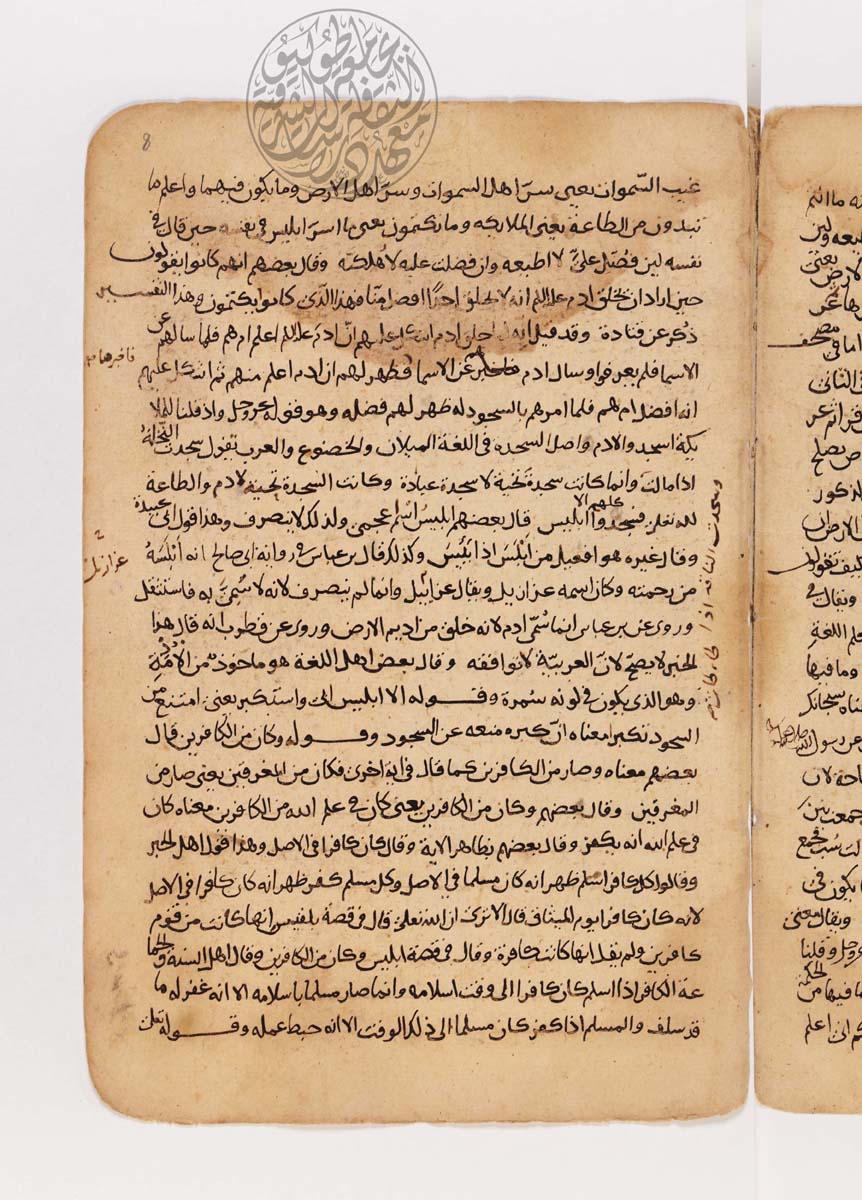 8
غيب السموات يعني سر اهل السموات وسر اهل الارض وما يكون فيهما واعلم ما
تبدون من الطاعة يعني الملايكه وما تكتمون يعني ما اسر ابليس في نفسه حين قال في
نفسه لين فضل علي لا اطيعه وان فضلت عليه لاهلكنه وقال بعضهم انهم كانوا يقولون
حين اراد ان يخلق ادم عليه السلم انه لا يخلق احدا افضل منا فهذا الذي كانوا يكتمون وهذا التفسير
ذكر عن قتادة وقد قيل انه خلق ادم اشكل عليهم ان ادم عليه السلم اعلم ام هم فلما سالهم عن
الاسما فلم يعرفوا وسال ادم عن الاسما فظهر لهم ان ادم اعلم منهم ثم اشكل عليهم
فاخبرها
انه افضل ام هم فلما امرهم بالسجود له ظهر لهم فضله وهو قوله عز وجل واذ قلنا للملا
يكة اسجدوا لادم واصل السجده في اللغة الميلان والخضوع والعرب تقول سجدت النخلة
اذا مالت وانما كانت سجدة تحية لا سجدة عبادة وكانت السجدة تحية لادم والطاعة
لله تعلى فسجدوا كلهم الا ابليس قال بعضهم ابليس اسم اعجمي ولذلك لا ينصرف وهذا قول ابي عبيدة
وقال غيره هو افعيل من ابلس اذا يئس وكذلك قال بن عباس في رواية ابي صالح انه ابلسه
من رحمته وكان اسمه عزازيل ويقال عزائيل وانما لم ينصرف لانه لا سمي به فاستثقل
عزازيل
وروي عن بن عباس انما سمي ادم لانه خلق من اديم الارض وروي عن قطرب انه قال هذا
الخبر لا يصح لان العربية لا توافقه وقال بعض اهل اللغة هو ماخوذ من الادمة
وهو الذي يكون في لونه سمرة وقوله الا ابليس ابى واستكبر يعني امتنع من
السجود تكبرا معناه ان كبره منعه عن السجود وقوله وكان من الكافرين قال
بعضهم معناه وصار من الكافرين كما قال في اية اخرى فكان من المغرقين يعني صار من
المغرقين وقال بعضهم وكان من الكافرين يعني كان في علم الله من الكافرين معناه كان
في علم الله انه يكفر وقال بعضهم بظاهر الاية وقال كان كافرا في الاصل وهذا قول اهل الجبر
وقالوا كل كافر اسلم ظهر انه كان مسلما في الاصل وكل مسلم كفر ظهر انه كان كافرا في الاصل
لانه كان كافرا يوم الميثاق قال الا ترى ان الله تعلى قال في قصة بلقيس انها كانت من قوم
كافرين ولم يقل انها كانت كافرة وقال في قصة ابليس وكان من الكافرين وقال اهل السنة والجما
عة الكافر اذا اسلم كان كافرا الى وقت اسلامه وانما صار مسلما باسلامه الا انه غفر له ما
قد سلف والمسلم اذا كفر كان مسلما الى ذلك الوقت الا انه حبط عمله وقوله تعلى
وسجدت الناقة اذا